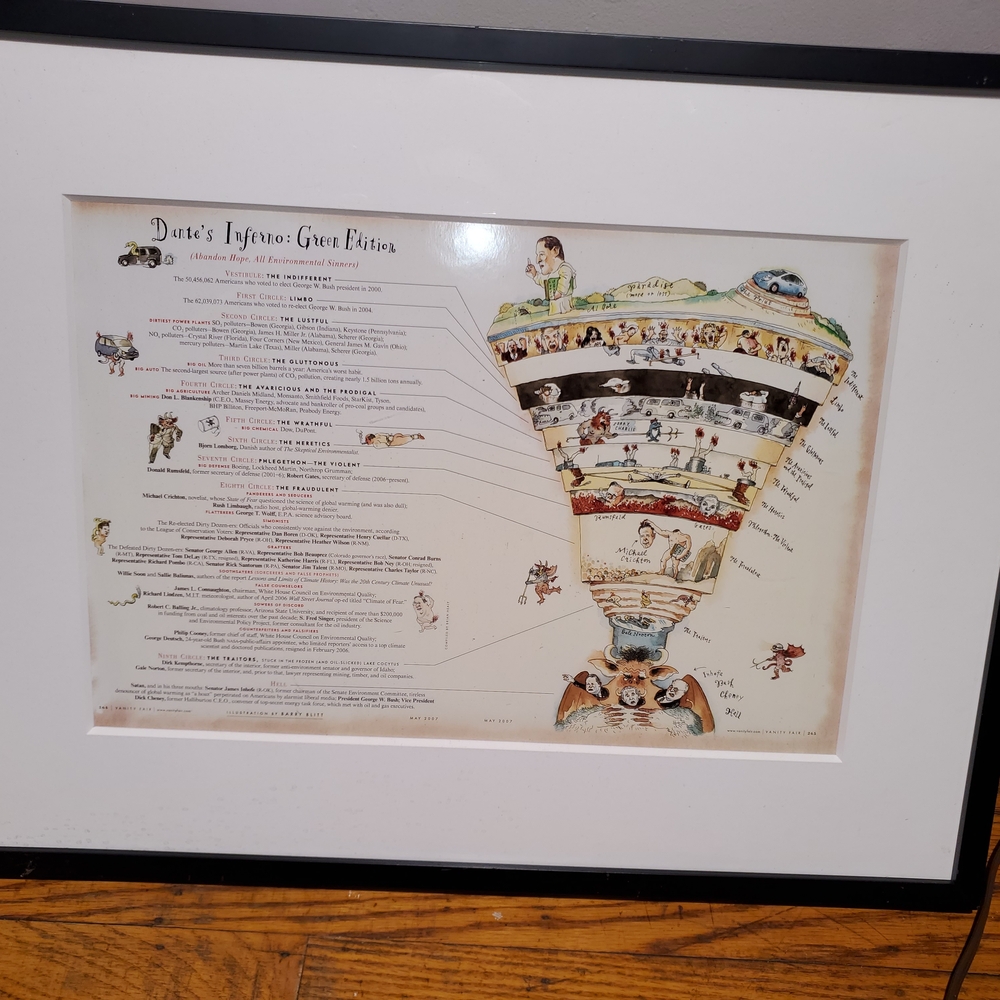 Dante's Inferno: Green Edition
(Abandon Hope, All Environmental Sinners)
VESTIBULE: THE INDIFFERENT
The 50,456,062 Americans who voted to elect George W. Bush president in 2000.
FIRST CIRCLE: LIMBO
The 62,039,073 Americans who voted to re-elect George W. Bush in 2004.
SECOND CIRCLE: THE LUSTFUL
DIRTIEST POWER PLANTS SO₂ polluters—Bowen (Georgia), Gibson (Indiana), Keystone (Pennsylvania);
CO₂ polluters—Bowen (Georgia), James H. Miller Jr. (Alabama), Scherer (Georgia);
NOₓ polluters—Crystal River (Florida), Four Corners (New Mexico), General James M. Gavin (Ohio);
mercury polluters—Martin Lake (Texas), Miller (Alabama), Scherer (Georgia).
THIRD CIRCLE: THE GLUTTONOUS
BIG OIL More than seven billion barrels a year: America's worst habit.
BIG AUTO The second-largest source (after power plants) of CO₂ pollution, creating nearly 1.5 billion tons annually.
FOURTH CIRCLE: THE AVARICIOUS AND THE PRODIGAL
BIG AGRICULTURE Archer Daniels Midland, Monsanto, Smithfield Foods, StarKist, Tyson.
BIG MINING Don L. Blankenship (C.E.O., Massey Energy, advocate and bankroller of pro-coal groups and candidates),
BHP Billiton, Freeport-McMoRan, Peabody Energy.
FIFTH CIRCLE: THE WRATHFUL
BIG CHEMICAL Dow, DuPont.
SIXTH CIRCLE: THE HERETICS
Bjørn Lomborg, Danish author of The Skeptical Environmentalist.
SEVENTH CIRCLE: PHLEGETHON—THE VIOLENT
BIG DEFENSE Boeing, Lockheed Martin, Northrop Grumman;
Donald Rumsfeld, former secretary of defense (2001–6); Robert Gates, secretary of defense (2006–present).
EIGHTH CIRCLE: THE FRAUDULENT
PANDERERS AND SEDUCERS
Michael Crichton, novelist, whose State of Fear questioned the science of global warming (and was also dull);
Rush Limbaugh, radio host, global-warming denier.
FLATTERERS George T. Wolff, E.P.A. science advisory board.
SIMONISTS
The Re-elected Dirty Dozen-ers: Officials who consistently vote against the environment, according
to the League of Conservation Voters: Representative Dan Boren (D-OK), Representative Henry Cuellar (D-TX),
Representative Deborah Pryce (R-OH), Representative Heather Wilson (R-NM).
GRAFTERS
The Defeated Dirty Dozen-ers: Senator George Allen (R-VA), Representative Bob Beauprez (Colorado governor's race), Senator Conrad Burns
(R-MT), Representative Tom DeLay (R-TX, resigned), Representative Katherine Harris (R-FL), Representative Bob Ney (R-OH, resigned),
Representative Richard Pombo (R-CA), Senator Rick Santorum (R-PA), Senator Jim Talent (R-MO), Representative Charles Taylor (R-NC).
SOOTHSAYERS (SORCERERS AND FALSE PROPHETS)
Willie Soon and Sallie Baliunas, authors of the report Lessons and Limits of Climate History: Was the 20th Century Climate Unusual?
FALSE COUNSELORS
James L. Connaughton, chairman, White House Council on Environmental Quality;
Richard Lindzen, M.I.T. meteorologist, author of April 2006 Wall Street Journal op-ed titled "Climate of Fear."
SOWERS OF DISCORD
Robert C. Balling Jr., climatology professor, Arizona State University, and recipient of more than $700,000
in funding from coal and oil interests over the past decade; S. Fred Singer, president of the Science
and Environmental Policy Project, former consultant for the oil industry.
COUNTERFEITERS AND FALSIFIERS
Philip Cooney, former chief of staff, White House Council on Environmental Quality;
George Deutsch, 24-year-old Bush public-affairs appointee, who limited reporters' access to a top climate
scientist and doctored publications; resigned in February 2006.
NINTH CIRCLE: THE TRAITORS, STUCK IN THE FROZEN (AND OIL-SLICKED) LAKE COCYTUS
Dirk Kempthorne, secretary of the interior, former anti-environment senator and governor of Idaho;
Gale Norton, former secretary of the interior, and, prior to that, lawyer representing mining, timber, and oil companies.
HELL
Satan, and in his three mouths: Senator James Inhofe (R-OK), former chairman of the Senate Environment Committee,
denouncement of global warming as "a hoax" perpetrated on Americans by alarmist liberal media; President George W. Bush; Vice President
Dick Cheney, former Halliburton C.E.O., convener of top-secret energy task force, which met with oil and gas executives.
VANITY FAIR
ILLUSTRATION BY BARRY BLITT
MAY 2007
MAY 2007
Paradise
Al Gore
The Prius
The Indifferent
Limbo
The Lustful
The Gluttonous
The Avaricious
and the Prodigal
The Wrathful
The Heretics
Phlegethon—The Violent
Rumsfeld
Gates
Michael
Crichton
The Fraudulent
The Traitors
Gale Norton
Inhofe
Bush
Cheney
Hell
VANITY FAIR